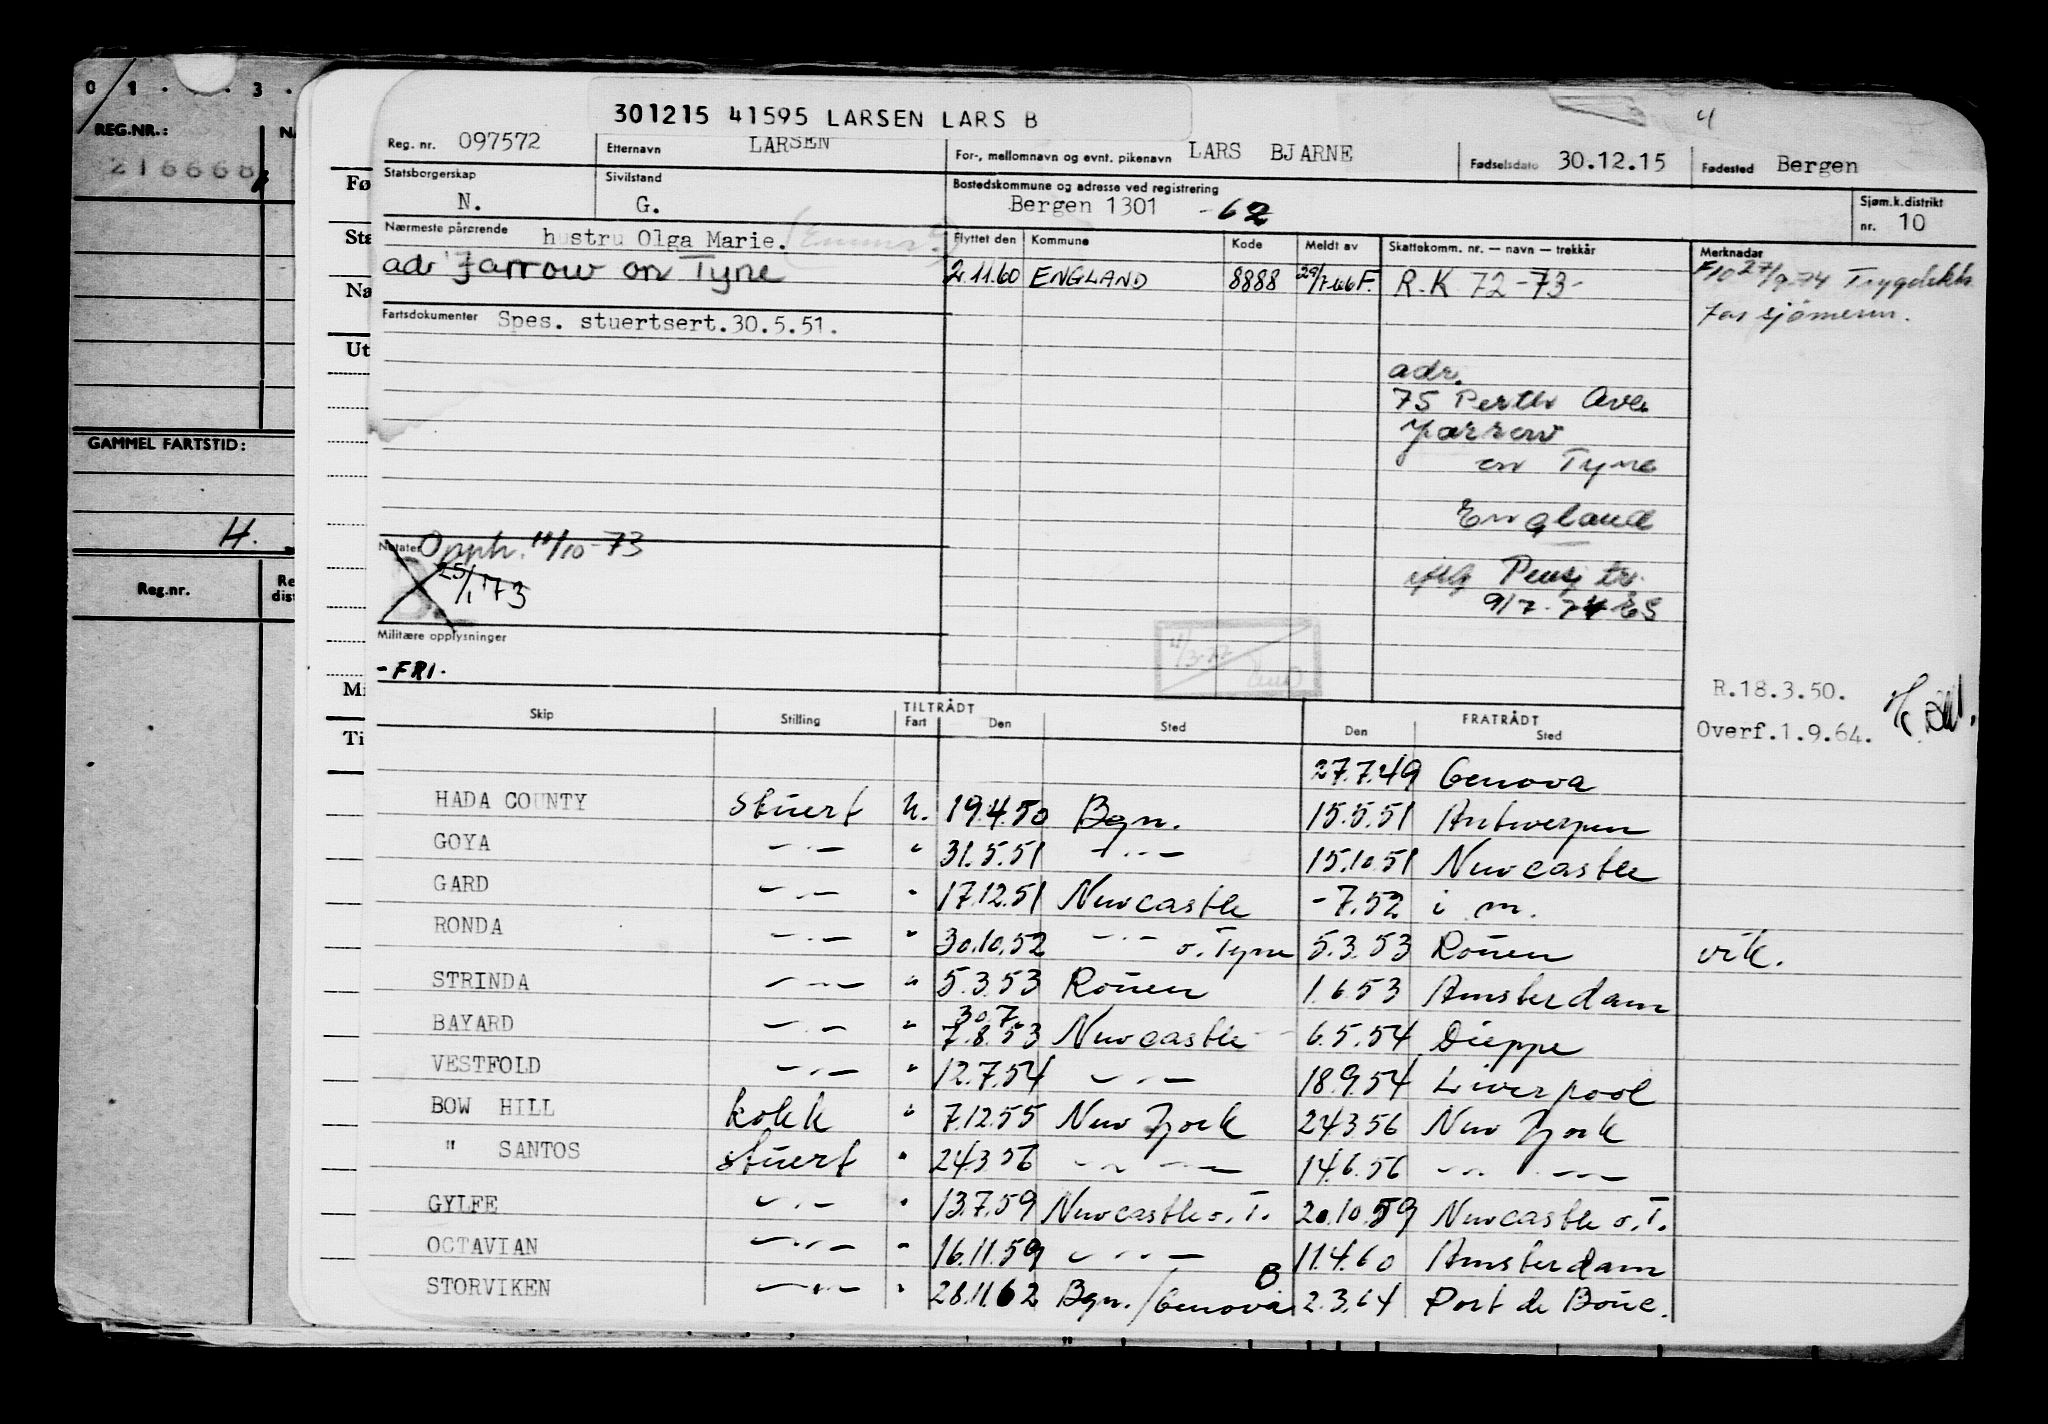 0 1 . . . 3 .
REG.NR.:
216668
GAMMEL FARTSTID:
H.
Reg.nr.
301215 41595 LARSEN LARS B
4
Reg. nr. 097572 Etternavn LARSEN For-, mellomnavn og evnt. pikenavn LARS BJARNE Fødselsdato 30.12.15 Fødested Bergen
Statsborgerskap N. Sivilstand G. Bostedskommune og adresse ved registrering Bergen 1301 -62 Sjøm.k.distrikt nr. 10
Nærmeste pårørende hustru Olga Marie.
adr Jarrow on Tyne
Flyttet den Kommune Kode Meldt av Skattekomm. nr. — navn — trekkår Merknader
2.11.60 ENGLAND 8888 29/7.66 F. R.K 72-73- F10 27/9.74 Trygdekts
for sjömenn.
Fartsdokumenter Spes. stuertsert.30.5.51.
adr.
75 Perth Ave
Jarrow
on Tyne
England
Pensj tr.
9/7-74 ES
Notater Opph. 11/10-73
25/1 73
Militære opplysninger
-FRI.
R.18.3.50.
Overf.1.9.64.
TILTRÅDT FRATRÅDT
Skip Stilling Fart Den Sted Den Sted
27.7.49 Genova
HADA COUNTY stuert U. 19.4.50 Bgn. 15.5.51 Antwerpen
GOYA —.— " 31.5.51 —.— 15.10.51 Newcastle
GARD —.— " 17.12.51 Newcastle -7.52 i m.
RONDA —.— " 30.10.52 —.— o. Tyne 5.3.53 Rouen vik.
STRINDA —.— " 5.3.53 Rouen 1.6.53 Amsterdam
30.7
BAYARD —.— " 7.8.53 Newcastle 6.5.54 Dieppe
VESTFOLD —.— " 12.7.54 —.— 18.9.54 Liverpool
BOW HILL kokk " 7.12.55 New York 24.3.56 New York
" SANTOS stuert " 24.3.56 —.— —.— 14.6.56 —.— —.—
GYLFE —.— " 13.7.59 Newcastle o. T. 20.10.59 Newcastle o. T.
OCTAVIAN —.— " 16.11.59 —.— 11.4.60 Amsterdam
STORVIKEN —.— " 28.11.62 Bgn./Genova B 2.3.64 Port de Bouc.